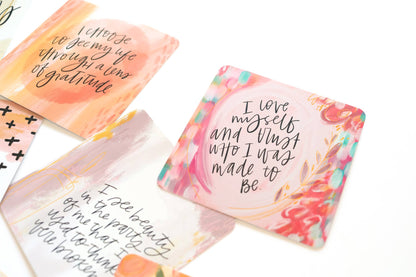 I choose
to see my life
through a lens
of gratitude
I love
myself
and trust
who I was
made to
be
I see beauty
in the parts
of me that I
used to think
were broken